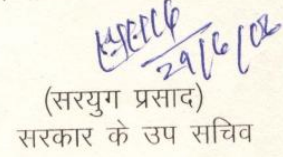 29/6/08
(सरयुग प्रसाद)
सरकार के उप सचिव